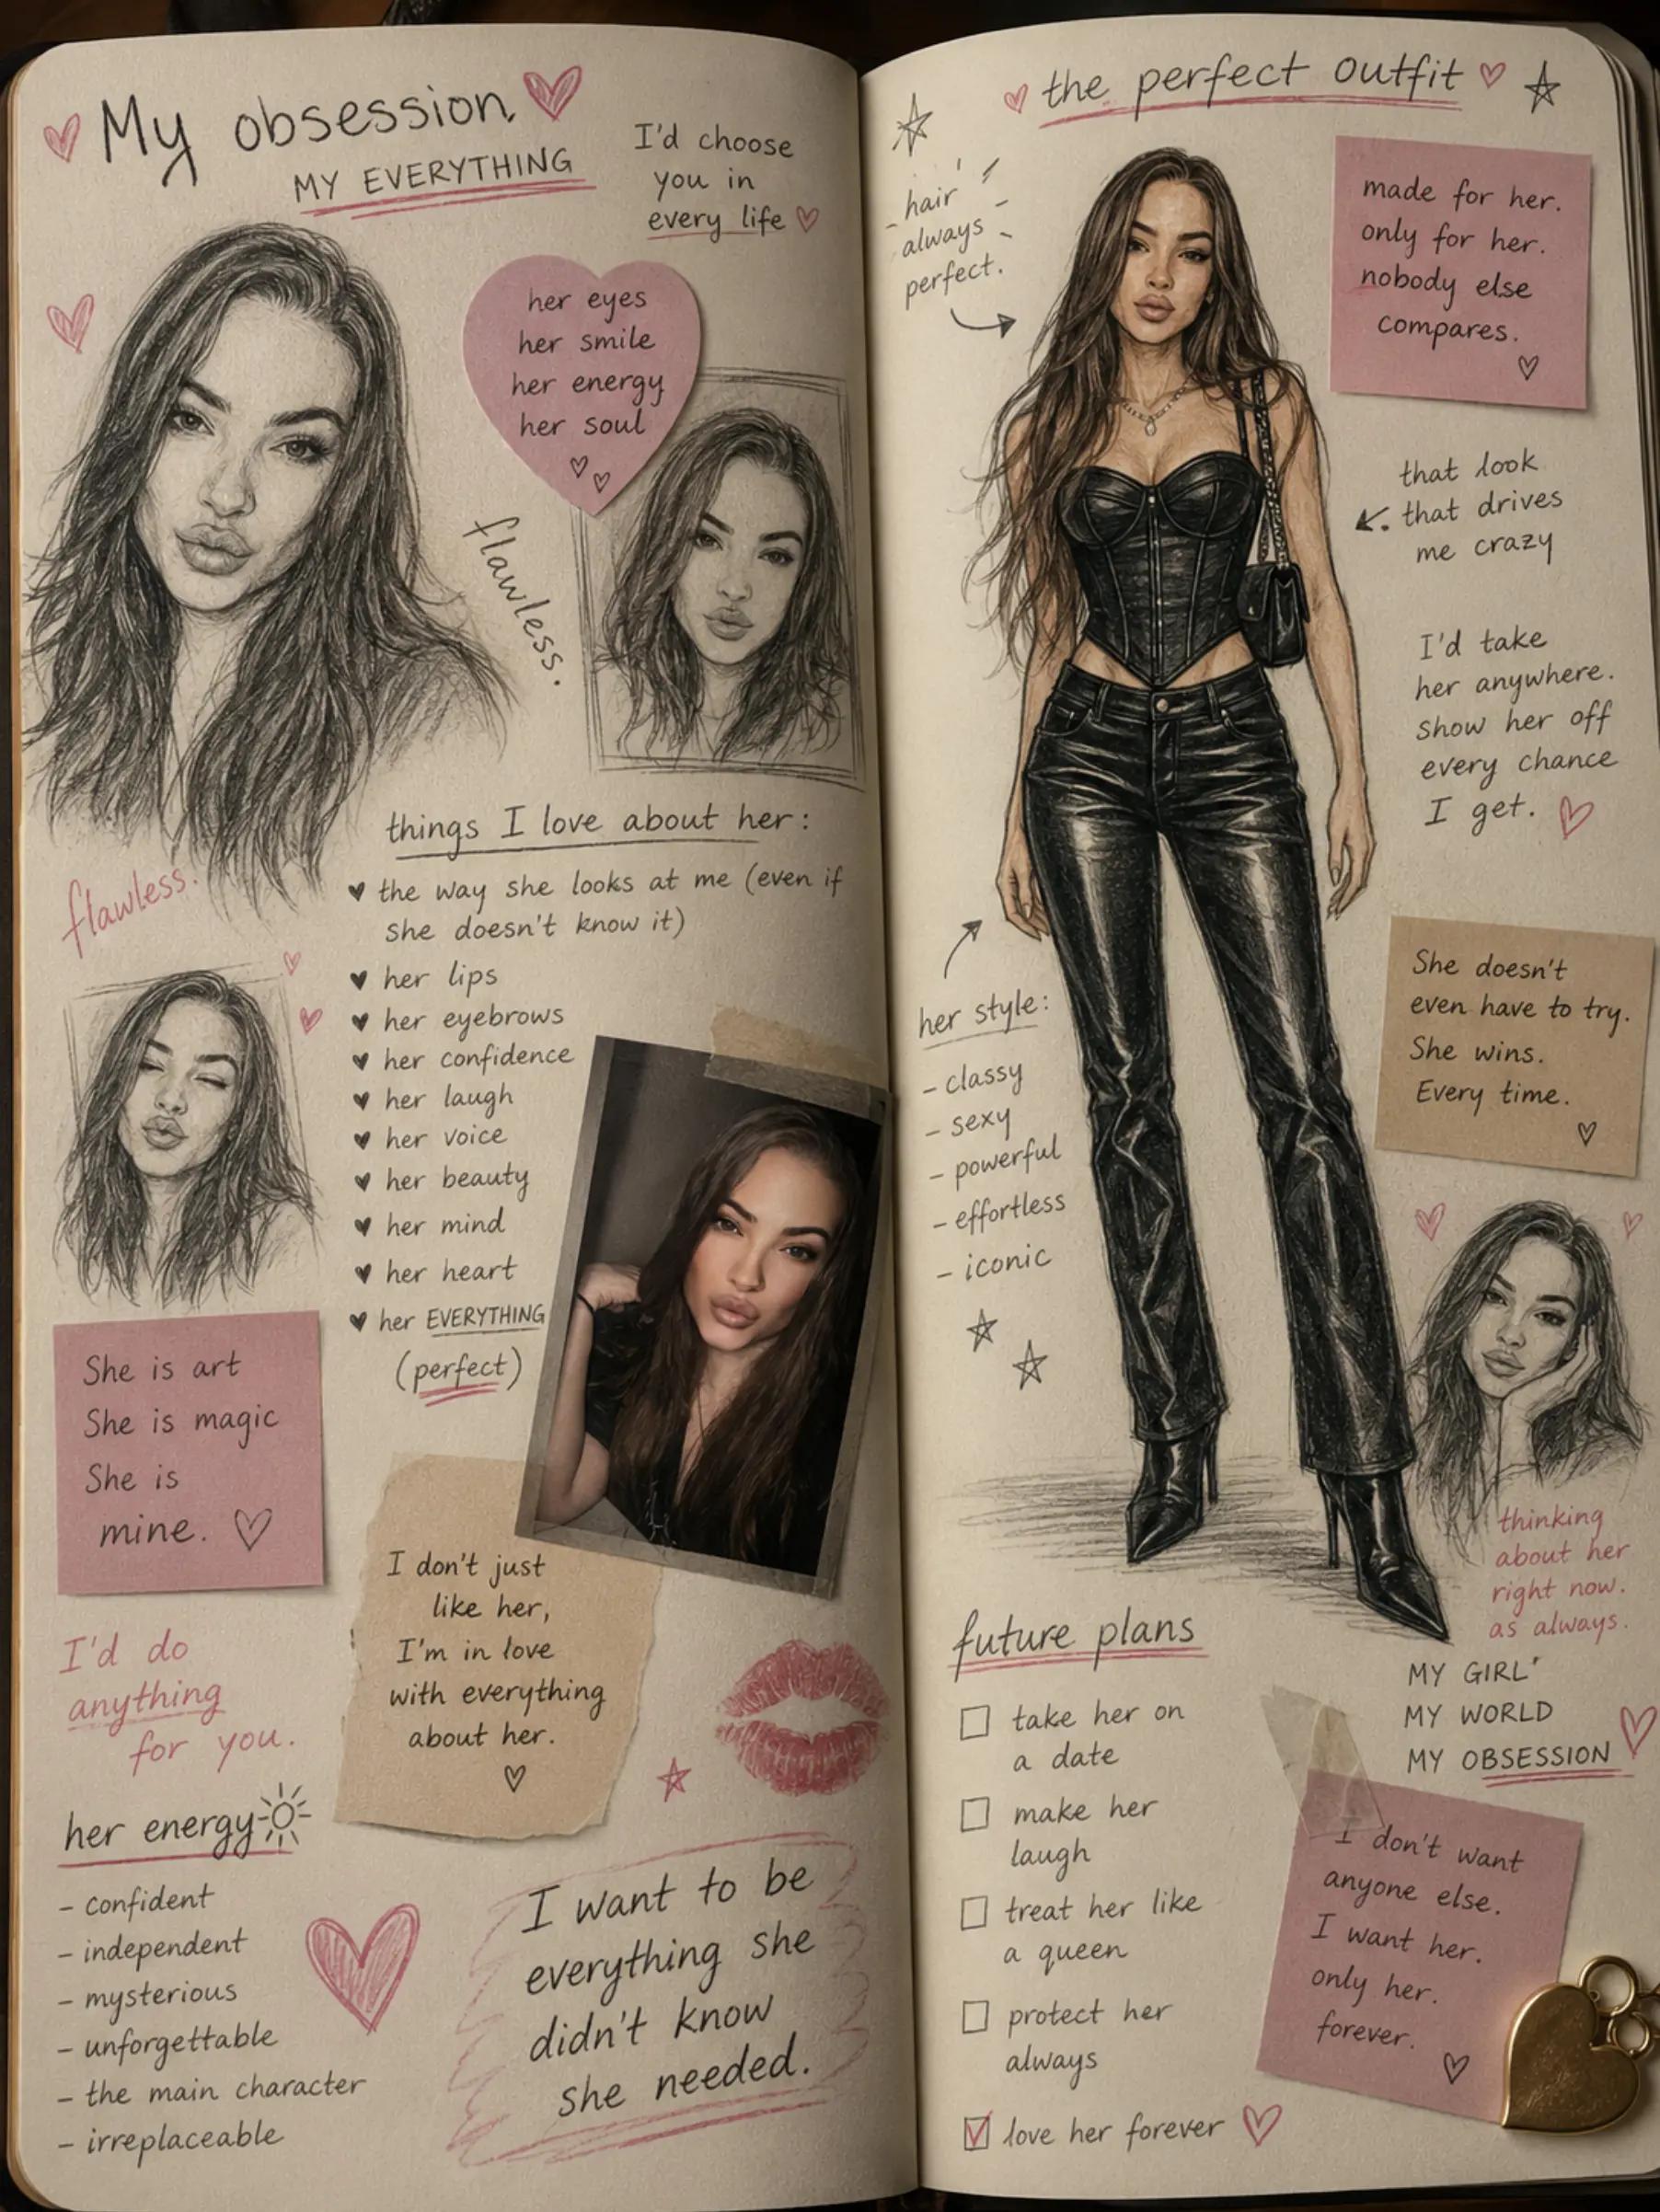 My obsession
MY EVERYTHING
I'd choose
you in
every life
her eyes
her smile
her energy
her soul
flawless.
flawless.
things I love about her:
the way she looks at me (even if
she doesn't know it)
her lips
her eyebrows
her confidence
her laugh
her voice
her beauty
her mind
her heart
her EVERYTHING
(perfect)
She is art
She is magic
She is
mine.
I don't just
like her,
I'm in love
with everything
about her.
I'd do
anything
for you.
her energy
- confident
- independent
- mysterious
- unforgettable
- the main character
- irreplaceable
I want to be
everything she
didn't know
she needed.
the perfect outfit
hair
always
perfect.
made for her.
only for her.
nobody else
compares.
that look
that drives
me crazy
I'd take
her anywhere.
show her off
every chance
I get.
her style:
- classy
- sexy
- powerful
- effortless
- iconic
She doesn't
even have to try.
She wins.
Every time.
thinking
about her
right now.
as always.
future plans
take her on
a date
make her
laugh
treat her like
a queen
protect her
always
love her forever
MY GIRL
MY WORLD
MY OBSESSION
I don't want
anyone else.
I want her.
only her.
forever.